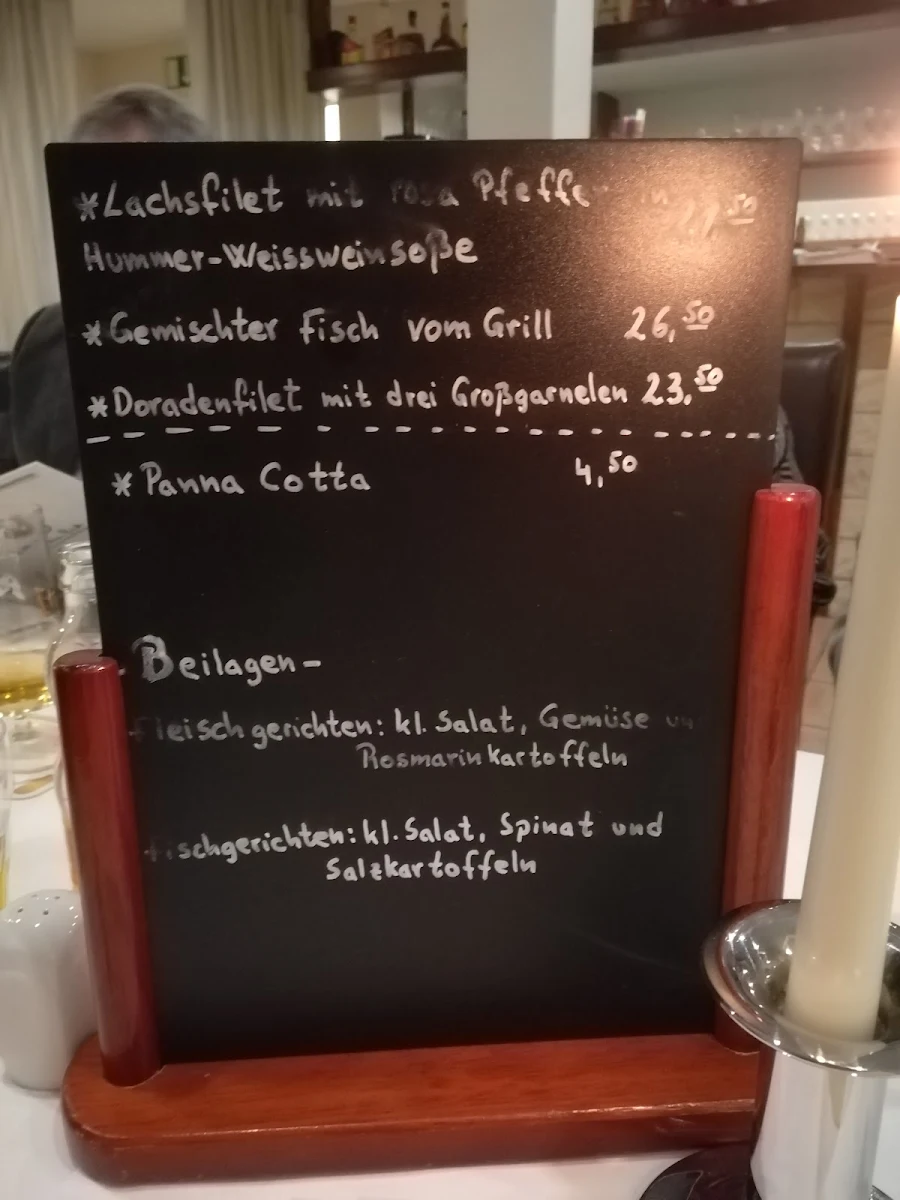 *Lachsfilet mit rosa Pfeffer in
Hummer-Weissweinsoße
*Gemischter Fisch vom Grill 26,50
*Doradenfilet mit drei Großgarnelen 23,50
*Panna Cotta 4,50
-Beilagen-
Fleischgerichten: kl. Salat, Gemüse un
Rosmarinkartoffeln
Fischgerichten: kl. Salat, Spinat und
Salzkartoffeln